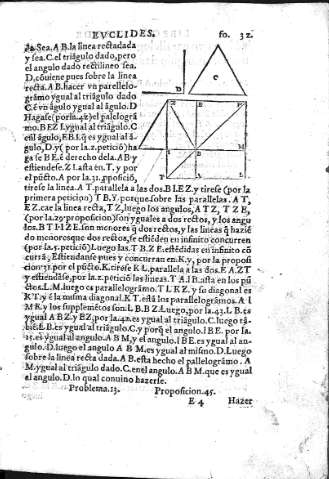 EVCLIDES. fo. 32.
da. Sea. A B. la linea recta dada
y sea. C. el triágulo dado, pero
el angulo dado rectilineo sea.
D. cõuiene pues sobre la linea
recta. A B. hazer vn parellelo-
grámo ygual al triágulo dado
C. é vn águlo ygual al águlo. D
Hagase (por la.42.) el palelográ
mo. B E Z I. ygual al triágulo. C
en el águlo, E B I. q̃ es ygual al á-
gulo, D. y (por la.2. petició) ha
ga se B E. é derecho de la. A B. y
estiendese. Z I. asta en. T. y por
el pũcto. A por la.31. pposició,
tirese la linea. A T. parallela a las dos. B I. E Z. y tirese (por la
primera peticion) T B. Y. porque sobre las parallelas. A T,
E Z. cae la linea recta, T Z, luego los angulos, A T Z, T Z E,
(por la.29. proposicion) son yguales a dos rectos, y los angu
los. B T I Z E. son menores q̃ dos rectos, y las lineas q̃ hazié
do menores que dos rectos, se estiéden en infinito concurren
(por la.5. petició) Luego las. T B Z E. estédidas en infinito có
currá, Estiendanse pues y concurran en. K, y, por la proposi
cion 31. por el púcto. K. tirese K L. parallela a las dos. E A. Z T
y estiendáse, por la.2. petició las lineas. T A. I B. asta en los pũ
ctos. L. M. luego es parallelográmo. T L K Z. y su diagonal es
K T. y é la misma diagonal. K T. está los parallelográmos. A I
M K y los supplemétos son. L B. B Z. Luego, por la.43. L B. es
ygual A B Z. y E Z, por la.42. es ygual al triágulo. C. luego tá-
bié. L B. es ygual al triágulo. C. y porq̃ el angulo. I B E. por la.
15. es ygual al angulo. A B M, y el angulo. I B E. es ygual al an-
gulo. D. luego el angulo A B M. es ygual al mismo. D. Luego
sobre la linea recta dada. A B. esta hecho el pallelográmo. A
M. ygual al triágulo dado. C. en el angulo. A B M. que es ygual
el angulo. D. lo qual conuino hazerse.
Problema.13. Proposicion.45.
E 4 Hazer